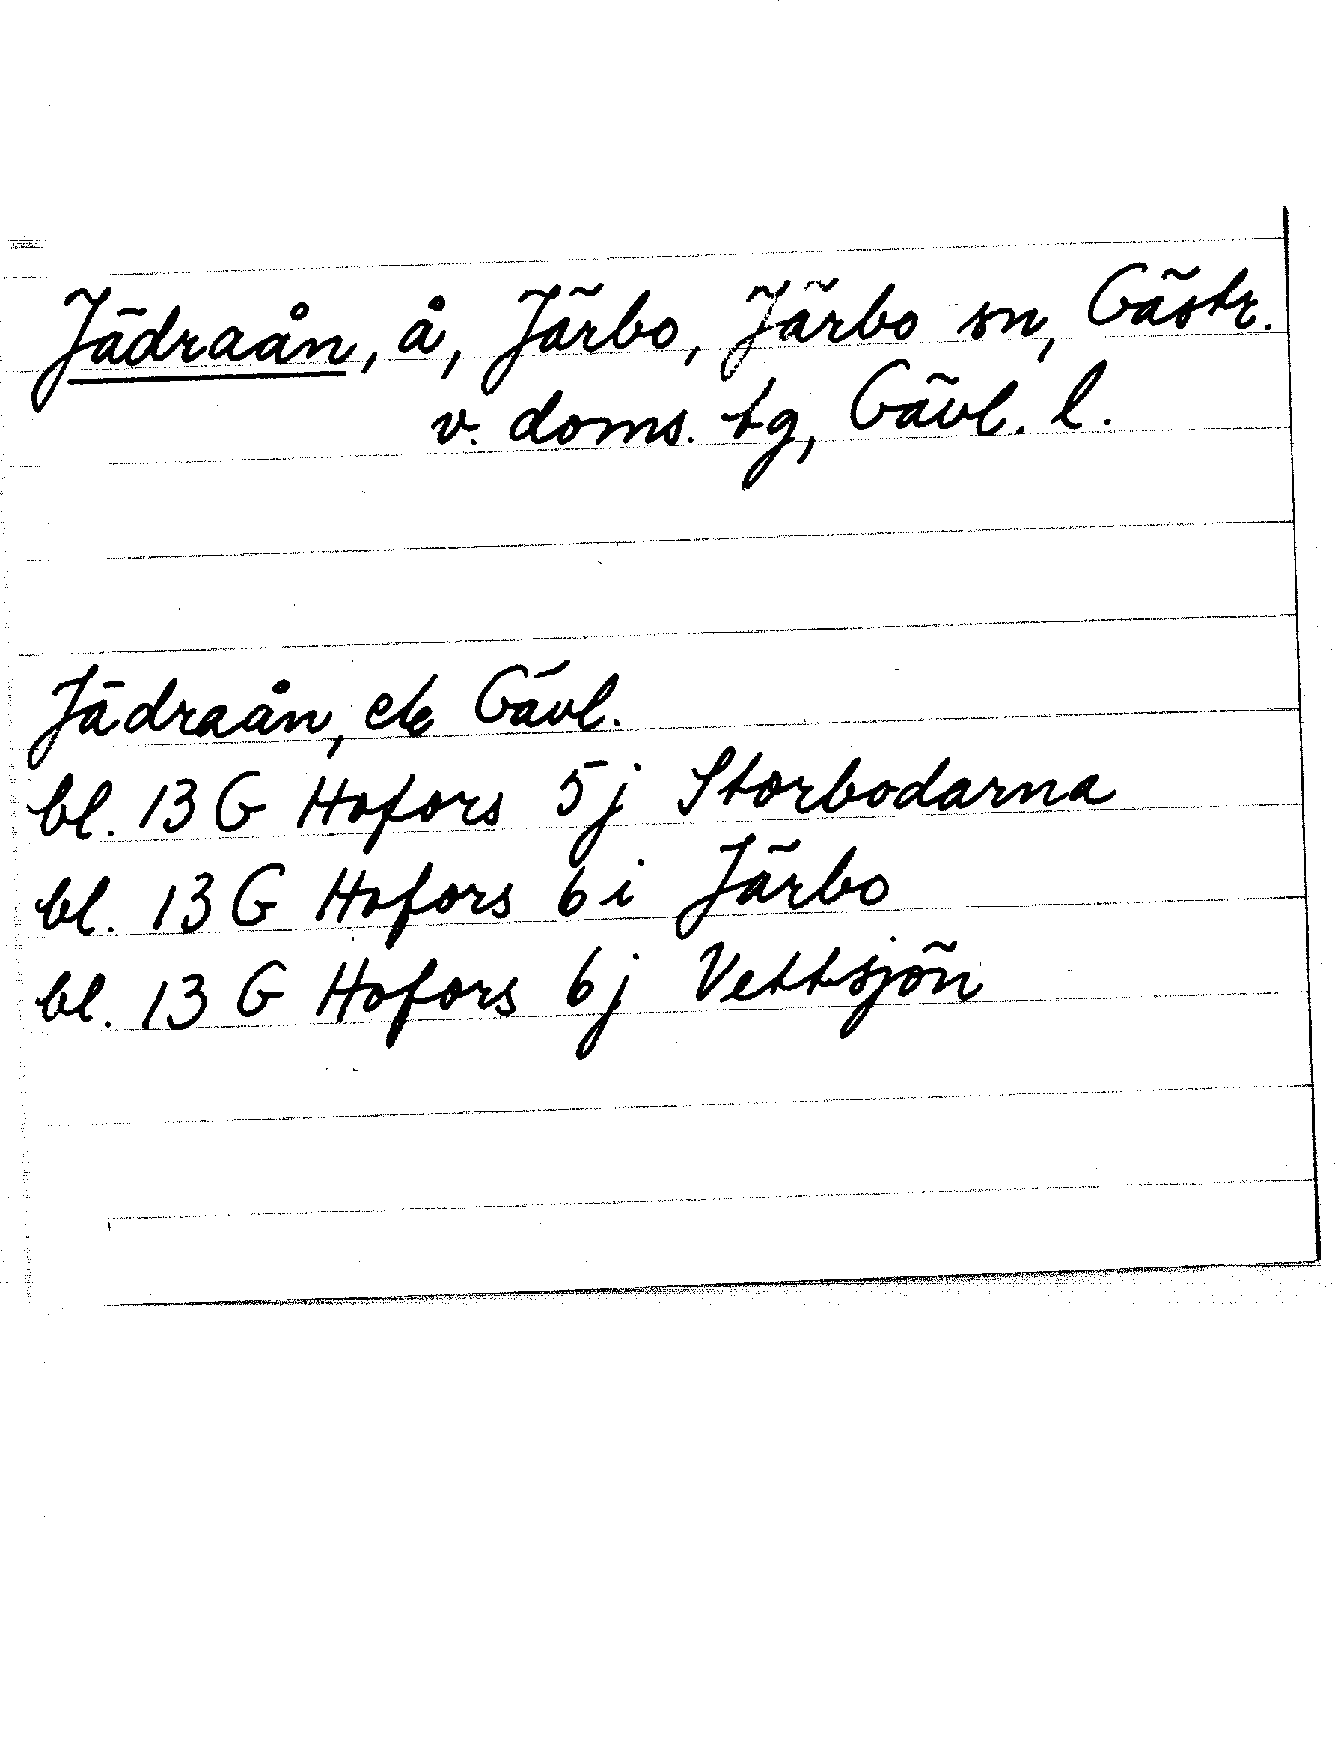 Jädraån, å, Järbo, Järbo sn, Gästr.
v. doms. tg, Gävl. l.
Jädraån, ek Gävl.
bl. 13 G Hofors 5j Storbodarna
bl. 13 G Hofors 6i Järbo
bl. 13 G Hofors 6j Vettsjön